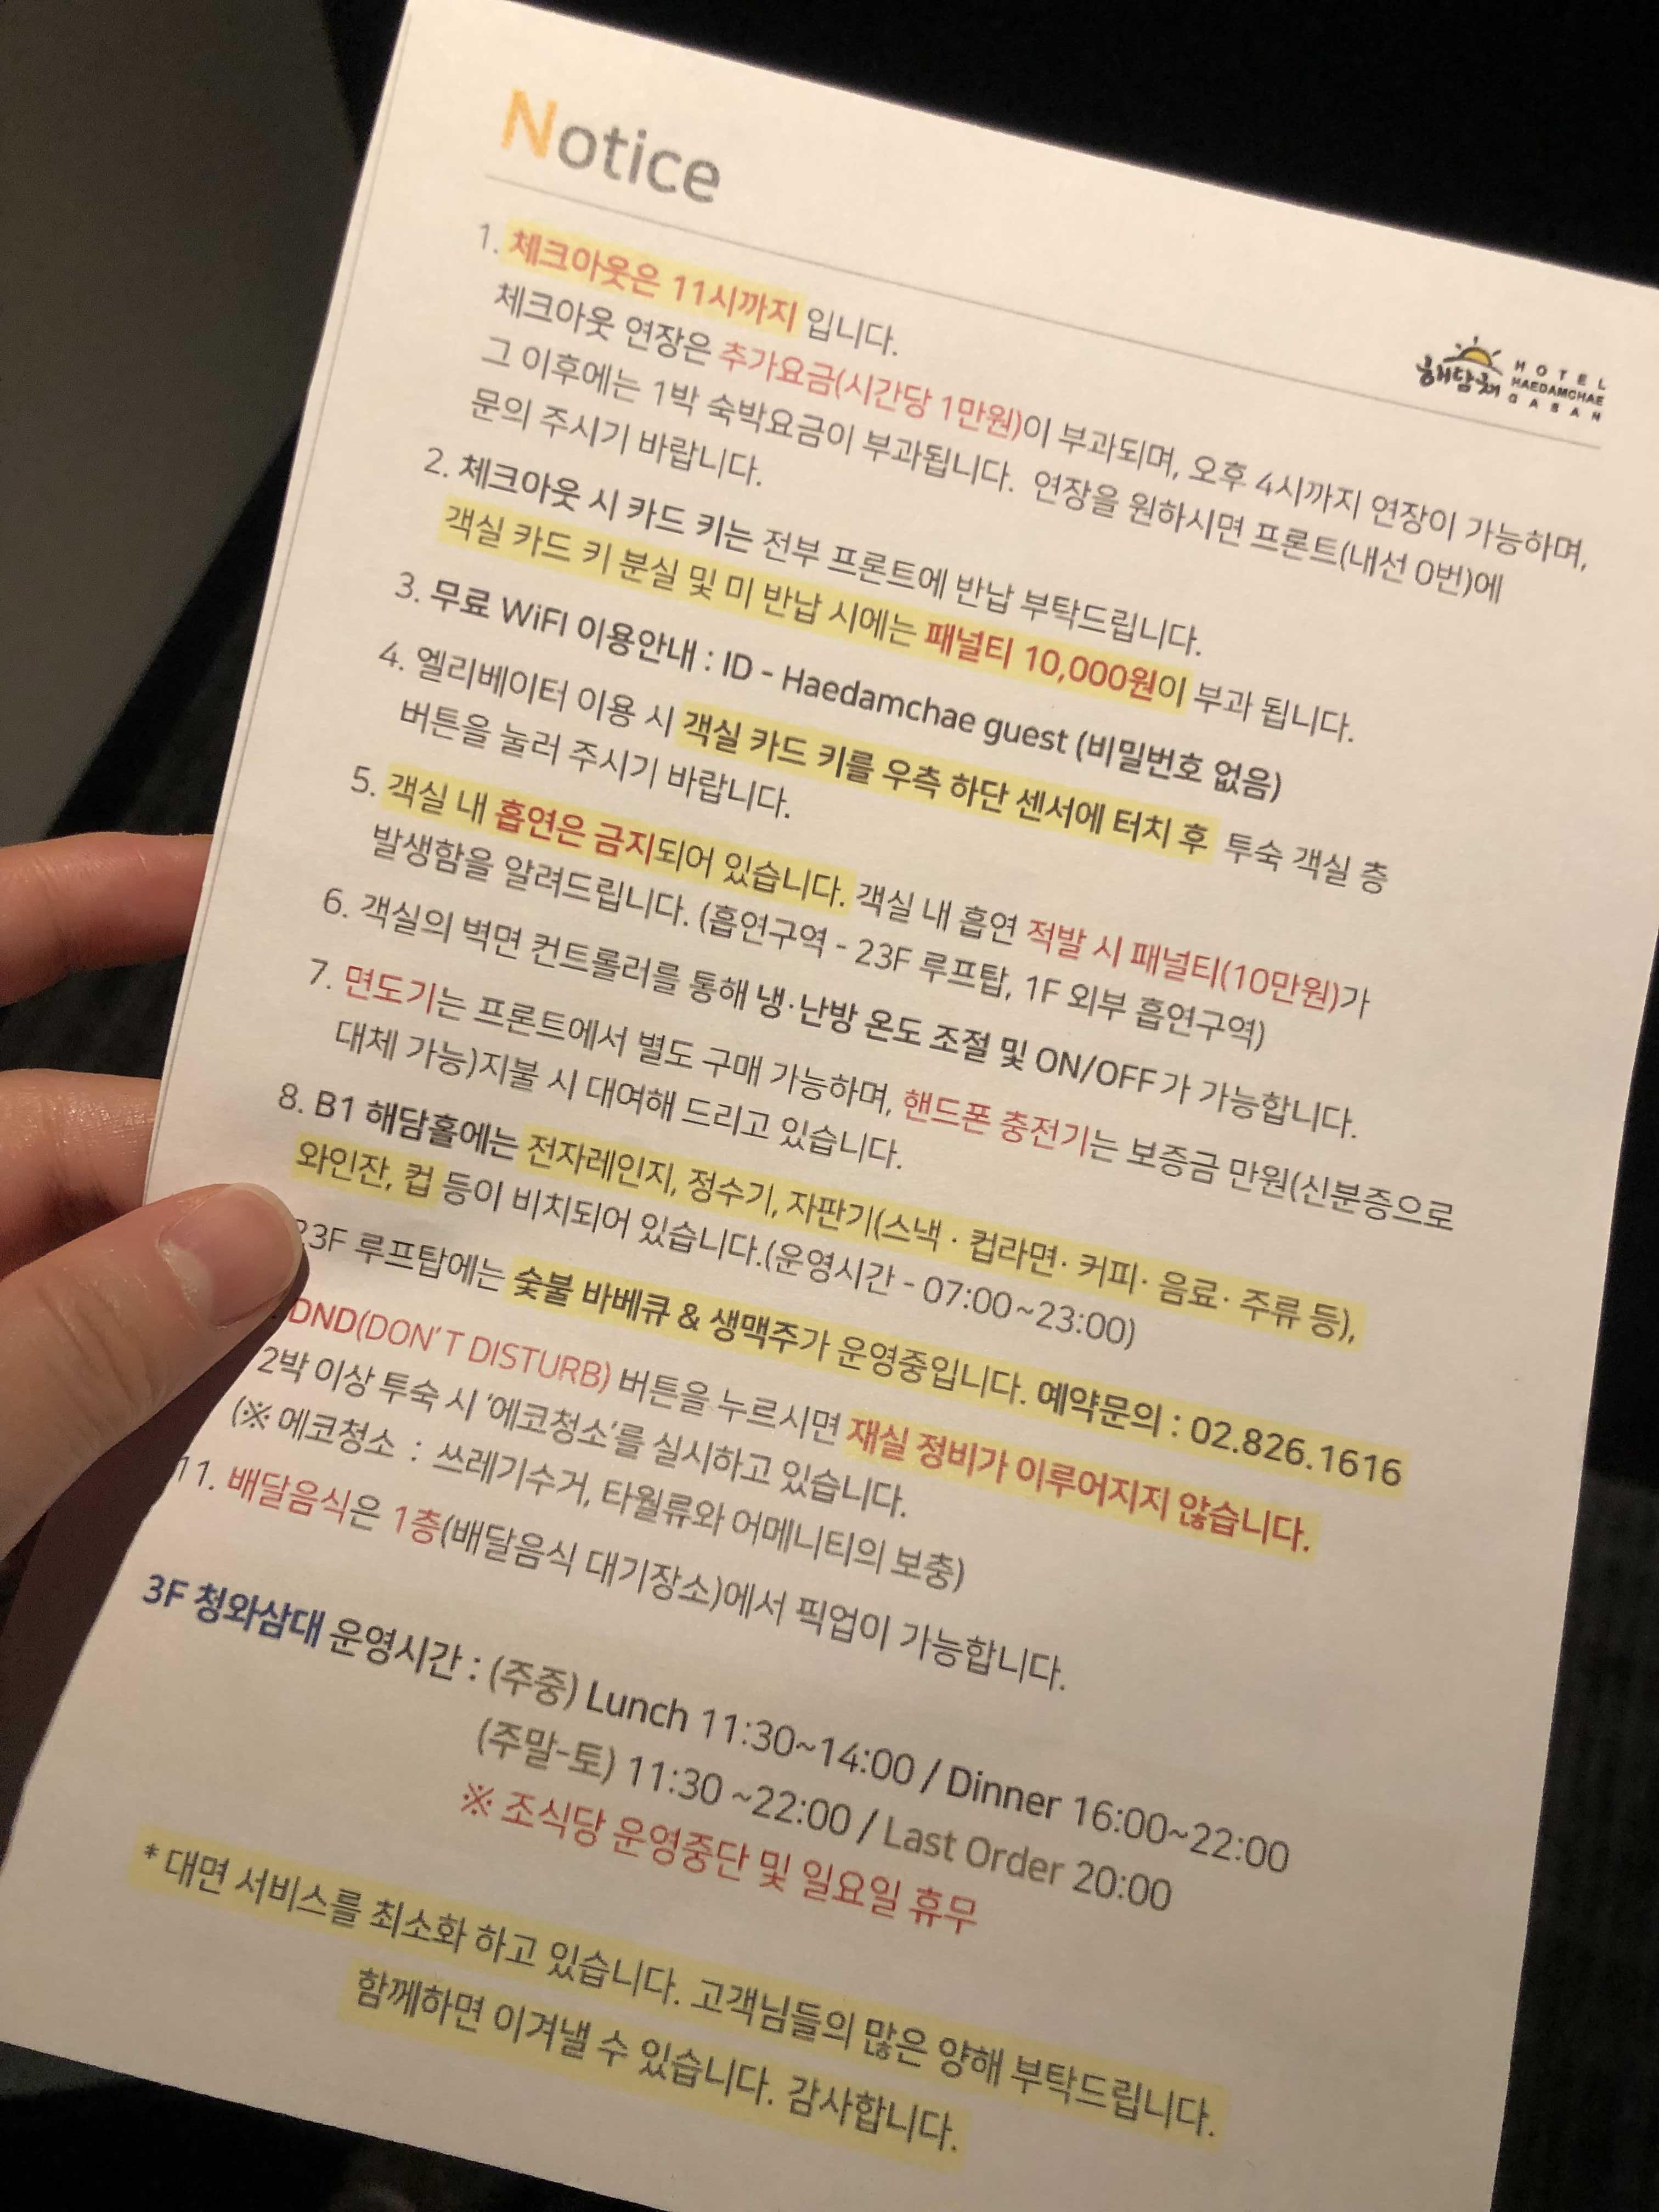 Notice
해담채 HOTEL
HAEDAMCHAE
GASAN
1. 체크아웃은 11시까지 입니다.
체크아웃 연장은 추가요금(시간당 1만원)이 부과되며, 오후 4시까지 연장이 가능하며,
그 이후에는 1박 숙박요금이 부과됩니다. 연장을 원하시면 프론트(내선 0번)에
문의 주시기 바랍니다.
2. 체크아웃 시 카드 키는 전부 프론트에 반납 부탁드립니다.
객실 카드 키 분실 및 미 반납 시에는 패널티 10,000원이 부과 됩니다.
3. 무료 WiFI 이용안내 : ID - Haedamchae guest (비밀번호 없음)
4. 엘리베이터 이용 시 객실 카드 키를 우측 하단 센서에 터치 후 투숙 객실 층
버튼을 눌러 주시기 바랍니다.
5. 객실 내 흡연은 금지되어 있습니다. 객실 내 흡연 적발 시 패널티(10만원)가
발생함을 알려드립니다. (흡연구역 - 23F 루프탑, 1F 외부 흡연구역)
6. 객실의 벽면 컨트롤러를 통해 냉·난방 온도 조절 및 ON/OFF가 가능합니다.
7. 면도기는 프론트에서 별도 구매 가능하며, 핸드폰 충전기는 보증금 만원(신분증으로
대체 가능)지불 시 대여해 드리고 있습니다.
8. B1 해담홀에는 전자레인지, 정수기, 자판기(스낵 · 컵라면· 커피· 음료· 주류 등),
와인잔, 컵 등이 비치되어 있습니다.(운영시간 - 07:00~23:00)
23F 루프탑에는 숯불 바베큐 & 생맥주가 운영중입니다. 예약문의 : 02.826.1616
DND(DON'T DISTURB) 버튼을 누르시면 재실 정비가 이루어지지 않습니다.
2박 이상 투숙 시 '에코청소'를 실시하고 있습니다.
(※ 에코청소 : 쓰레기수거, 타월류와 어메니티의 보충)
11. 배달음식은 1층(배달음식 대기장소)에서 픽업이 가능합니다.
3F 청와삼대 운영시간 : (주중) Lunch 11:30~14:00 / Dinner 16:00~22:00
(주말-토) 11:30 ~22:00 / Last Order 20:00
※ 조식당 운영중단 및 일요일 휴무
* 대면 서비스를 최소화 하고 있습니다. 고객님들의 많은 양해 부탁드립니다.
함께하면 이겨낼 수 있습니다. 감사합니다.